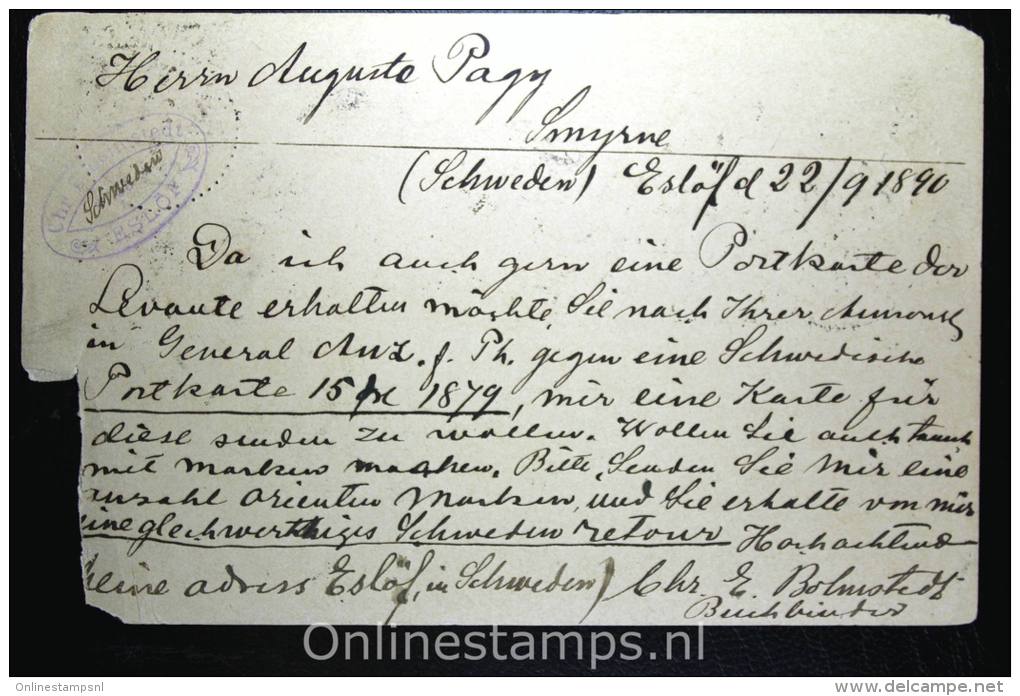 Herrn Auguste Pagy
Smyrne
(Schweden) Eslöf d 22/9 1890
Schweden
ESLÖF
Da ich auch gern eine Postkarte der
Levante erhalten möchte, Sie nach Ihrer
in General Anz. f. Ph. gegen eine Schwedische
Postkarte 15 1879, mir eine Karte für
diese senden zu wollen. Wollen Sie auch tausch
mit marken machen. Bitte, Senden Sie mir eine
anzahl orienten Marken, und Sie erhalte von mir
eine gleichwerthiges Schweden retour Hochachtend
Meine adress Eslöf, in Schweden) Chr. E. Bolmstedt
Buchbinder
Onlinestamps.nl
Onlinestampsnl
www.delcampe.net